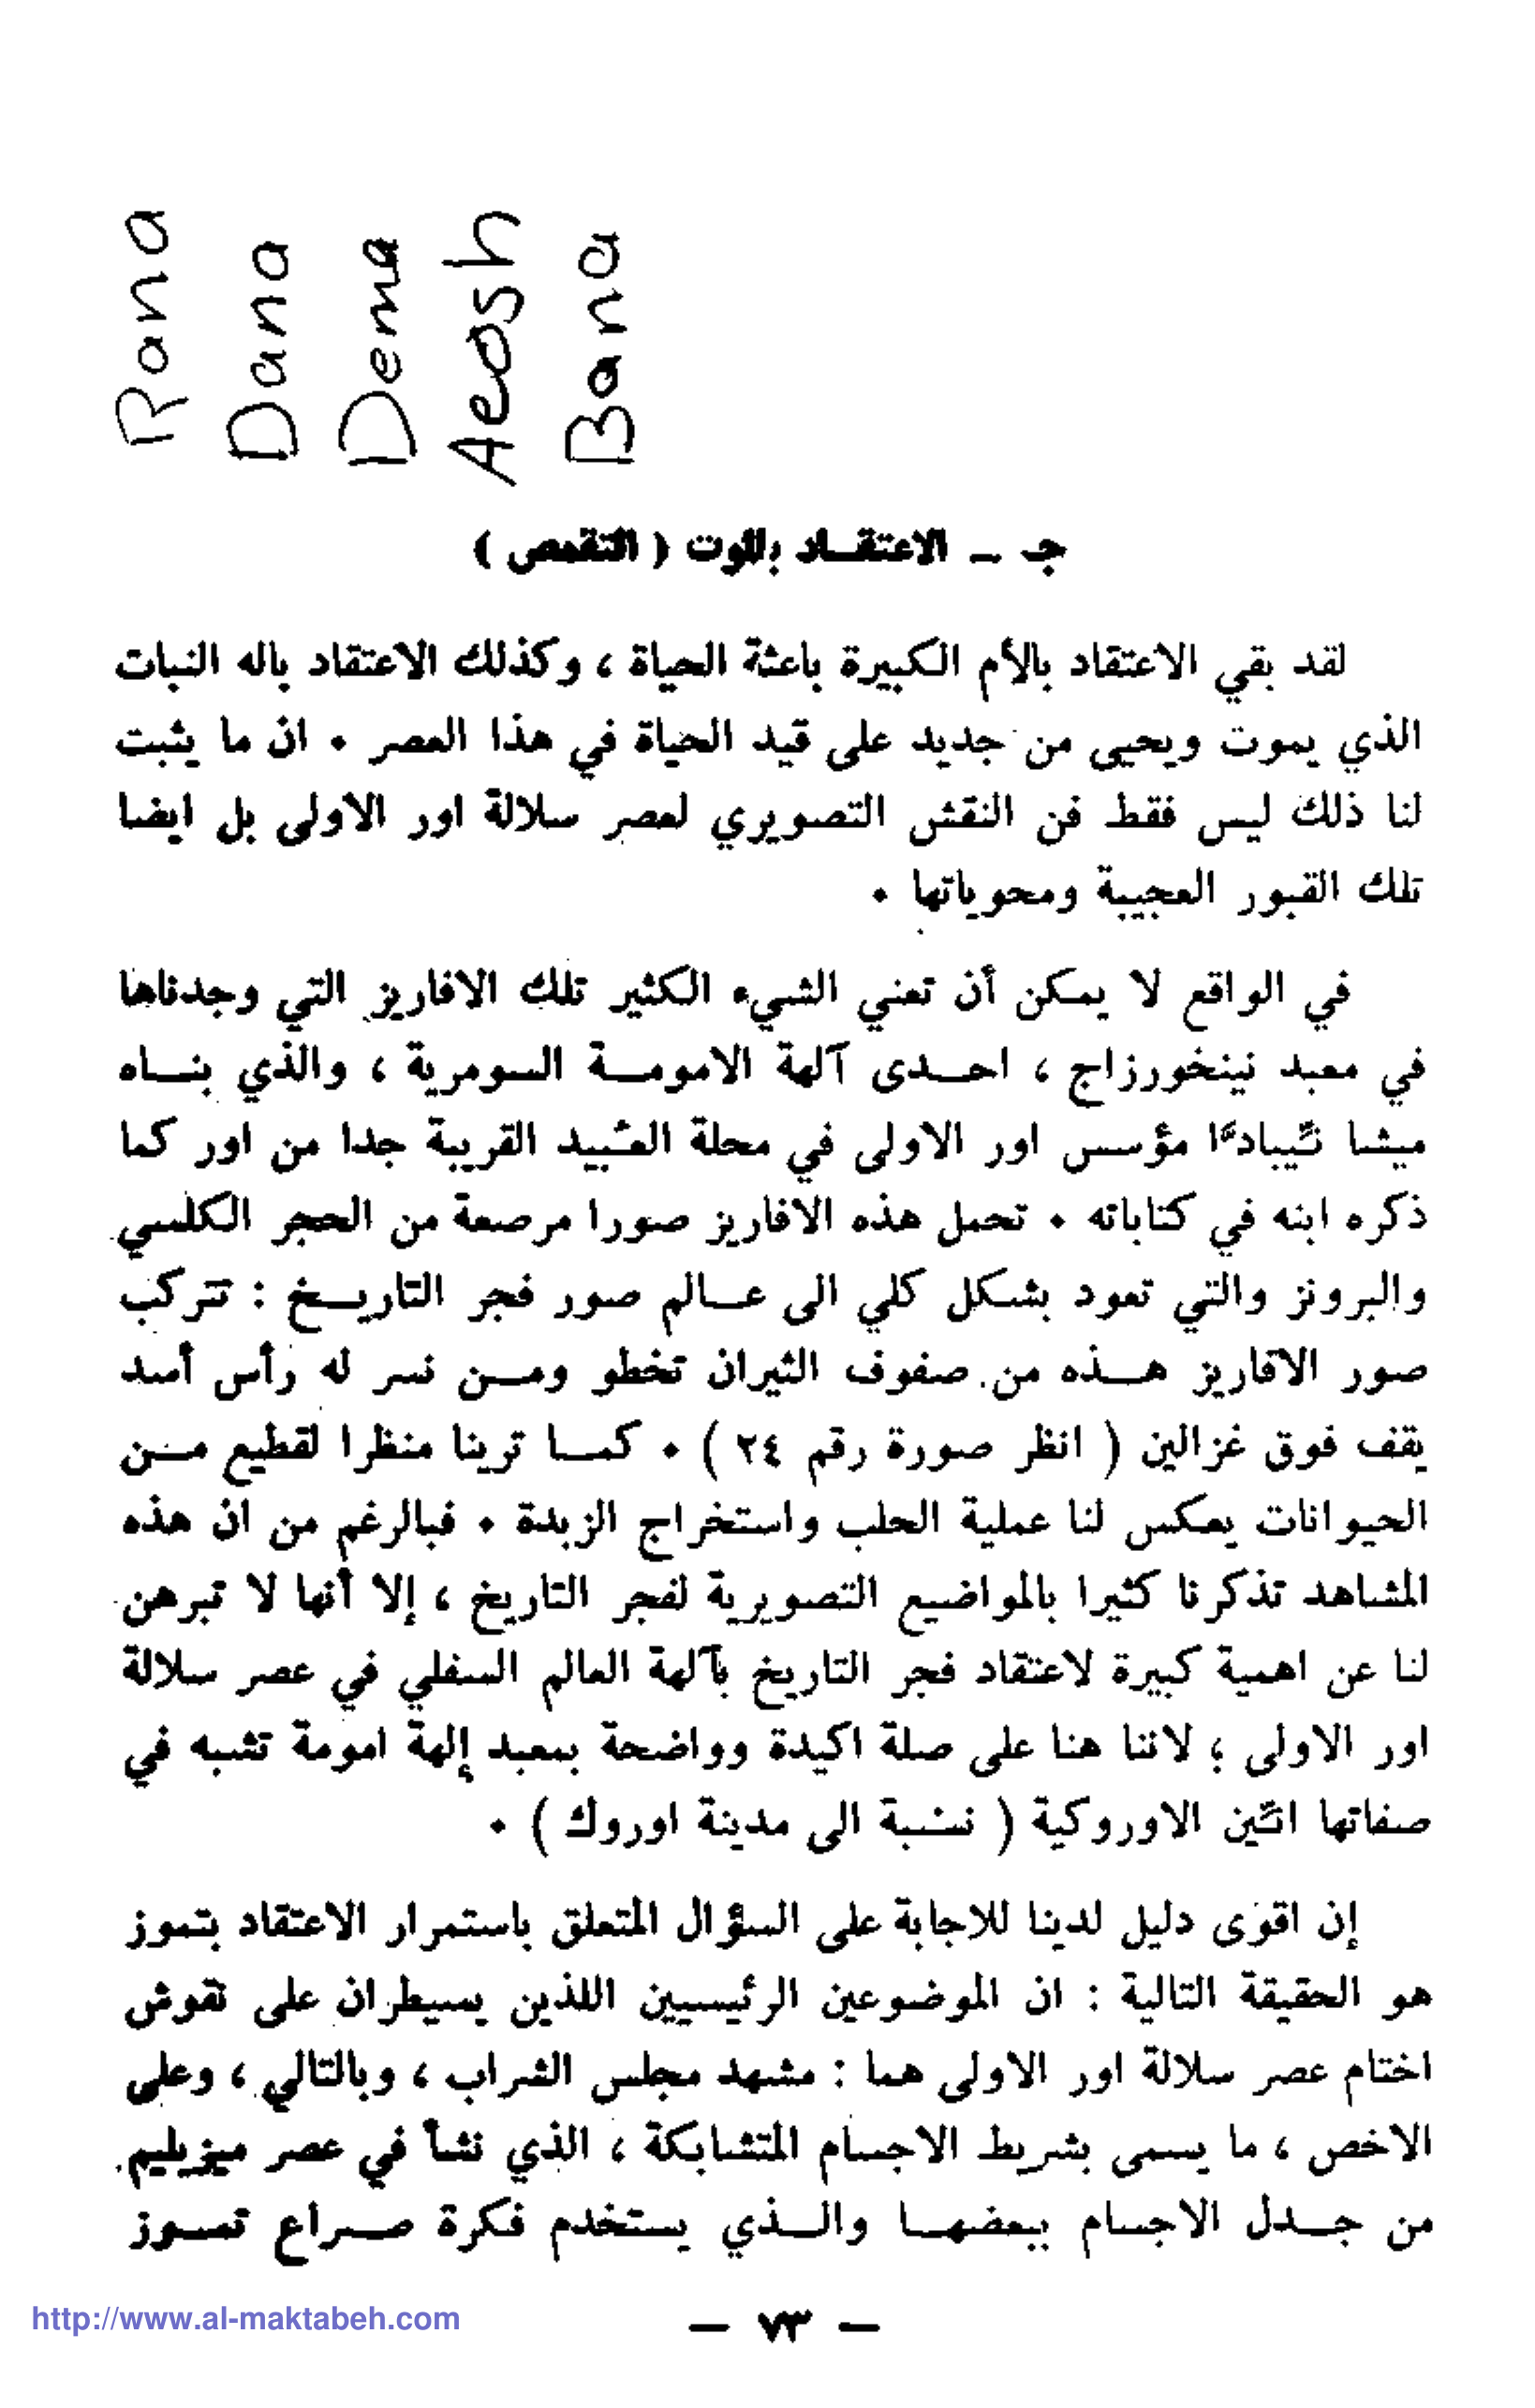 Rana
Dana
Dema
Aeosh
Bana
جـ ـ الاعتقـاد بالموت ( التقمص )
لقد بقي الاعتقاد بالأم الكبيرة باعثة الحياة ، وكذلك الاعتقاد باله النبات
الذي يموت ويحيى من جديد على قيد الحياة في هذا العصر ٠ ان ما يثبت
لنا ذلك ليس فقط فن النقش التصويري لعصر سلالة اور الاولى بل ايضا
تلك القبور العجيبة ومحوياتها ٠
في الواقع لا يمكن أن تعني الشيء الكثير تلك الافاريز التي وجدناها
في معبد نينخورزاج ، احـدى آلهة الامومـة السومرية ، والذي بنـاه
ميشا مؤسس اور الاولى في محلة العبيد القريبة جدا من اور كما
ذكره ابنه في كتاباته ٠ تحمل هذه الافاريز صورا مرصعة من الحجر الكلسي
والبرونز والتي تعود بشكل كلي الى عـالم صور فجر التاريـخ : تتركب
صور الافاريز هـذه من صفوف الثيران تخطو ومـن نسر له رأس أسد
يقف فوق غزالين ( انظر صورة رقم ٢٤ ) ٠ كمـا ترينا منظرا لقطيع مـن
الحيوانات يعكس لنا عملية الحلب واستخراج الزبدة ٠ فبالرغم من ان هذه
المشاهد تذكرنا كثيرا بالمواضيع التصويرية لفجر التاريخ ، إلا أنها لا تبرهن
لنا عن اهمية كبيرة لاعتقاد فجر التاريخ بآلهة العالم السفلي في عصر سلالة
اور الاولى ؛ لاننا هنا على صلة اكيدة وواضحة بمعبد إلهة امومة تشبه في
صفاتها انّين الاوروكية ( نسبة الى مدينة اوروك ) ٠
إن اقوى دليل لدينا للاجابة على السؤال المتعلق باستمرار الاعتقاد بتموز
هو الحقيقة التالية : ان الموضوعين الرئيسيين اللذين يسيطران على نقوش
اختام عصر سلالة اور الاولى هما : مشهد مجلس الشراب ، وبالتالي ، وعلى
الاخص ، ما يسمى بشريط الاجسام المتشابكة ، الذي نشأ في عصر ميزيليم
من جـدل الاجسام ببعضهـا والـذي يستخدم فكرة صـراع تمـوز
http://www.al-maktabeh.com
— ٧٣ —